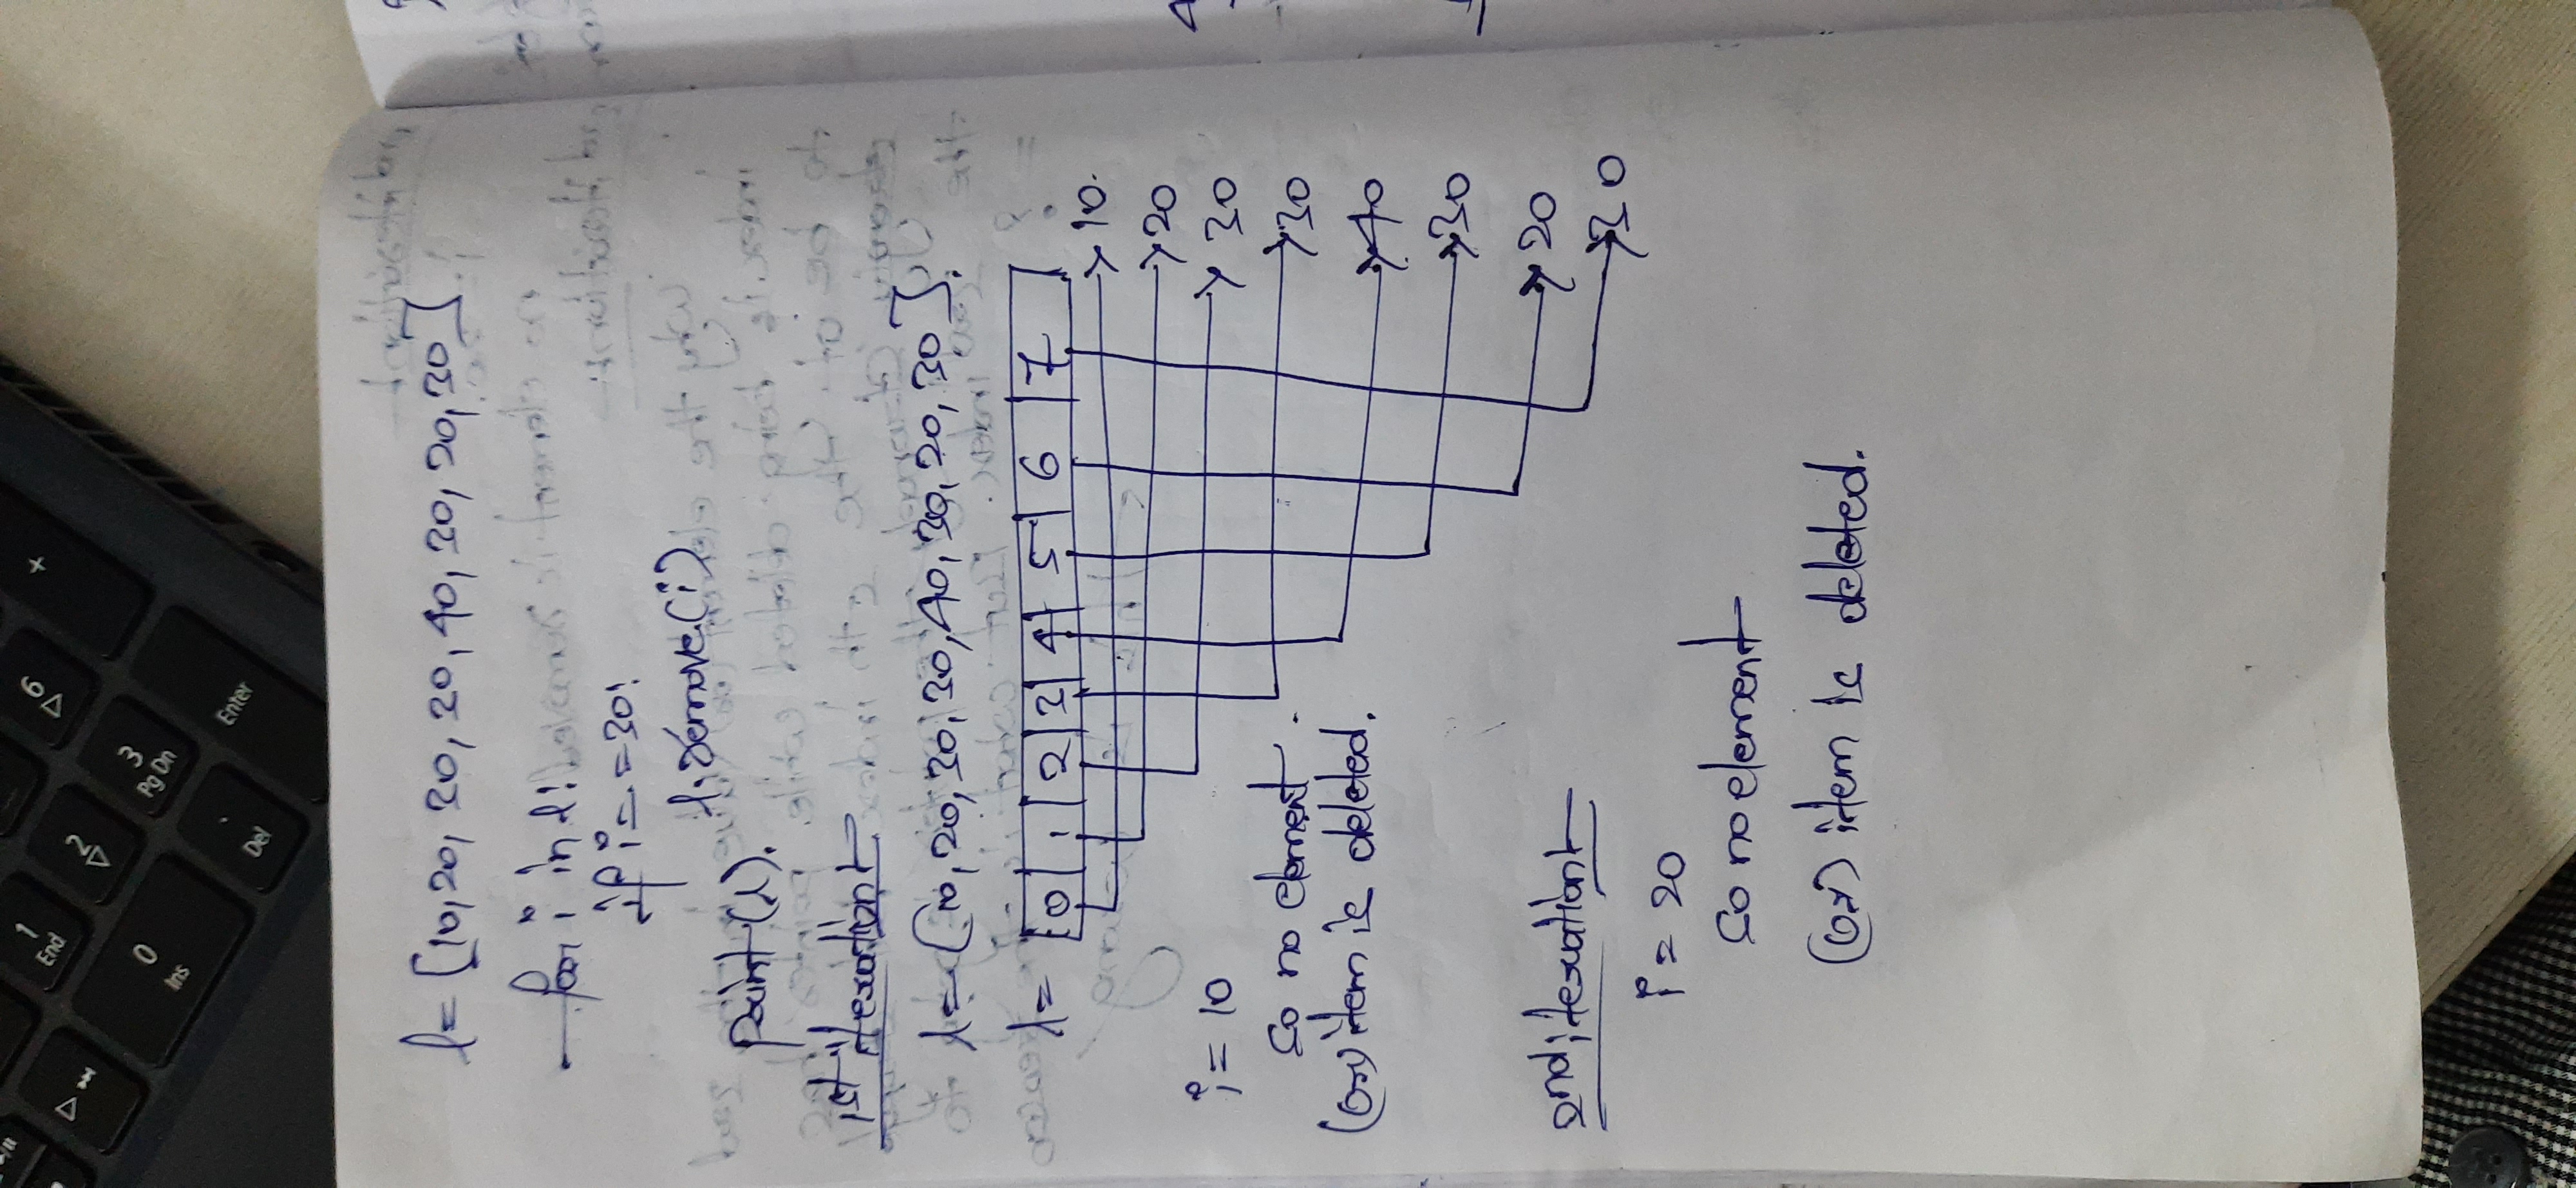 1
End
6
+
2
0
Ins
3
Pg Dn
.
Del
Enter
l = [10, 20, 30, 30, 40, 30, 20, 30]
for i in l:
if i == 30:
l.remove(i)
print(l).
1st iteration:-
l = [10, 20, 30, 30, 40, 30, 20, 30].
l = 0 1 2 3 4 5 6 7
→ 10.
→ 20
i = 10
→ 30
so no element
→ 30
(or) item is deleted.
→ 40
→ 30
→ 20
2nd iteration:-
→ 30
i = 20
so no element
(or) item is deleted.